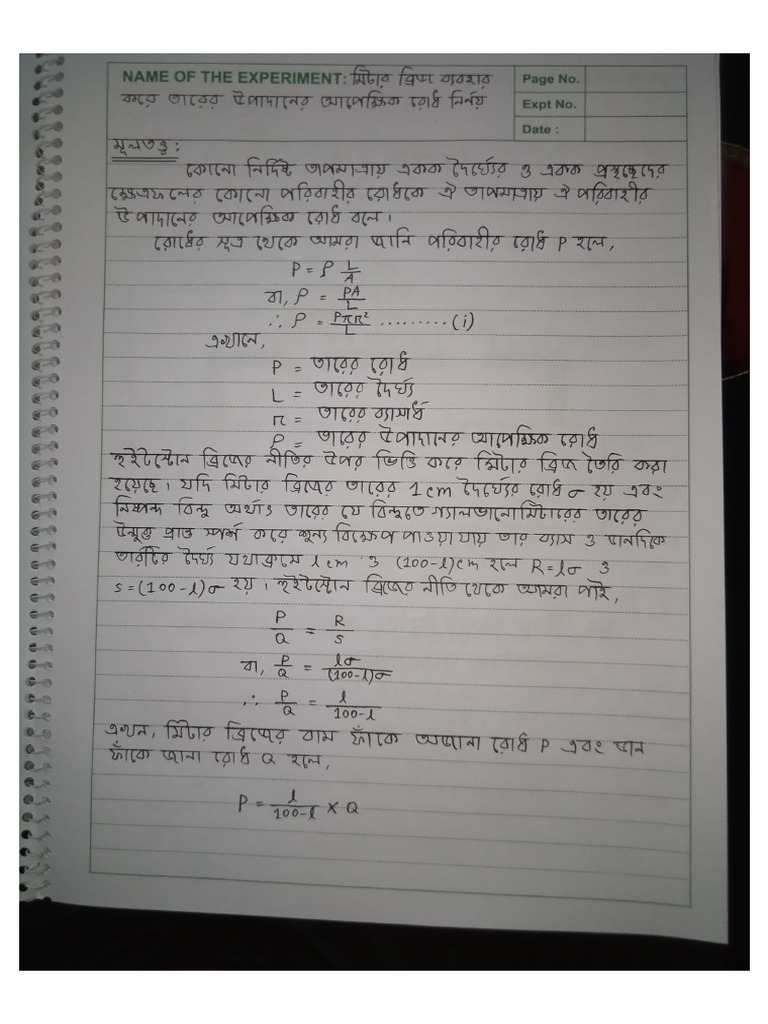 NAME OF THE EXPERIMENT: মিটার ব্রিজ ব্যবহার
করে তারের উপাদানের আপেক্ষিক রোধ নির্ণয়
Page No.
Expt No.
Date :
মূলতত্ত্ব :
কোনো নির্দিষ্ট তাপমাত্রায় একক দৈর্ঘ্যের ও একক প্রস্থচ্ছেদের
ক্ষেত্রফলের কোনো পরিবাহীর রোধকে ঐ তাপমাত্রায় ঐ পরিবাহীর
উপাদানের আপেক্ষিক রোধ বলে।
রোধের সূত্র থেকে আমরা জানি পরিবাহীর রোধ P হলে,
P = ρ L/A
বা, ρ = PA/L
∴ ρ = Pπr²/L ......... (i)
এখানে,
P = তারের রোধ
L = তারের দৈর্ঘ্য
r = তারের ব্যাসার্ধ
ρ = তারের উপাদানের আপেক্ষিক রোধ
হুইটস্টোন ব্রিজের নীতির উপর ভিত্তি করে মিটার ব্রিজ তৈরি করা
হয়েছে। যদি মিটার ব্রিজের তারের 1 cm দৈর্ঘ্যের রোধ σ হয় এবং
নিষ্পন্দ বিন্দু অর্থাৎ তারের যে বিন্দুতে গ্যালভানোমিটারের তারের
উন্মুক্ত প্রান্ত স্পর্শ করে শূন্য বিক্ষেপ পাওয়া যায় তার বাম ও ডানদিকে
তারটির দৈর্ঘ্য যথাক্রমে l cm ও (100-l)cm হলে R=lσ ও
S=(100-l)σ হয়। হুইটস্টোন ব্রিজের নীতি থেকে আমরা পাই,
P/Q = R/S
বা, P/Q = lσ/(100-l)σ
∴ P/Q = l/100-l
এখন, মিটার ব্রিজের বাম ফাঁকে অজানা রোধ P এবং ডান
ফাঁকে জানা রোধ Q হলে,
P = l/100-l × Q